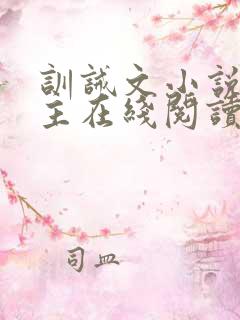 訓誡文小說
主在綫閱讀
司血